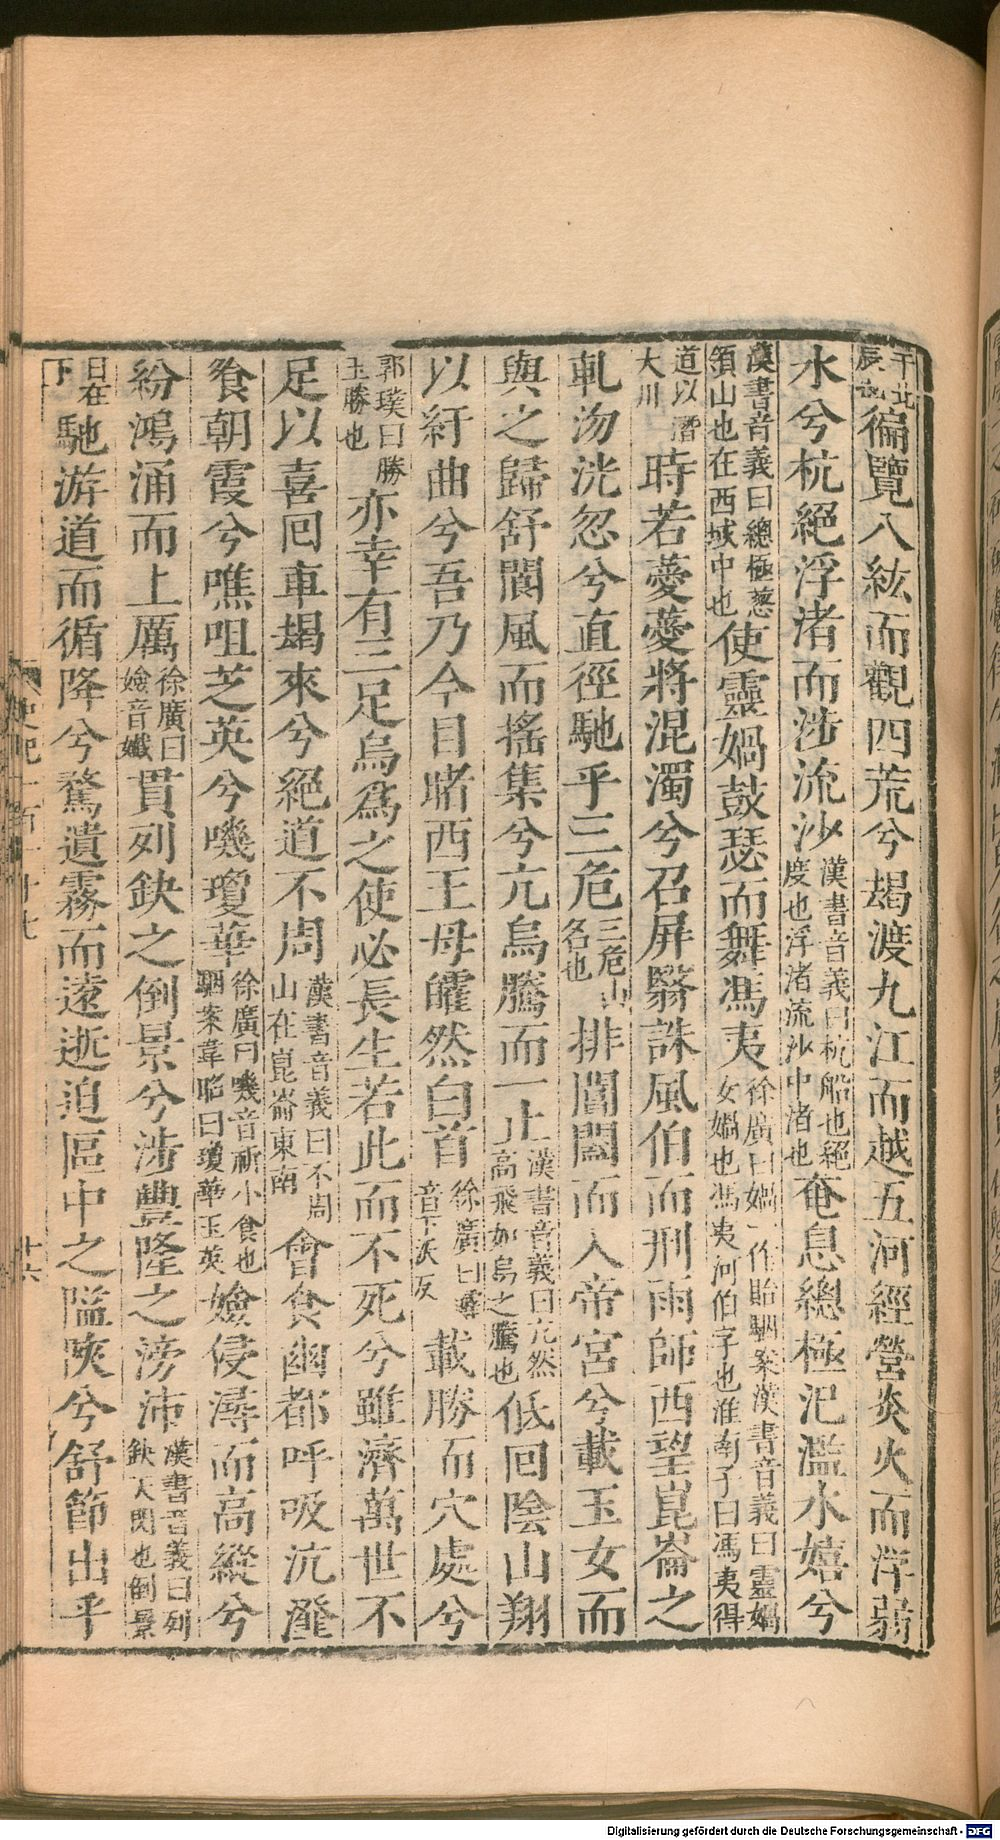 干北辰也徧覽八紘而觀四荒兮朅渡九江而越五河經營炎火而浮弱
水兮杭絕浮渚而涉流沙漢書音義曰杭船也絕度也浮渚流沙中渚也奄息總極氾濫水嬉兮
漢書音義曰總極葱領山也在西域中也使靈媧鼓瑟而舞馮夷徐廣曰媧一作貽駰案漢書音義曰靈媧女媧也馮夷河伯字也淮南子曰馮夷得
道以潛大川時若薆薆將混濁兮召屏翳誅風伯而刑雨師西望崑崙之
軋沕洸忽兮直徑馳乎三危三危山名也排閶闔而入帝宮兮載玉女而
與之歸舒閬風而搖集兮亢烏騰而一止漢書音義曰亢然高飛如烏之騰也低回陰山翔
以紆曲兮吾乃今目睹西王母皬然白首徐廣曰皬音下沃反載勝而穴處兮
郭璞曰勝玉勝也亦幸有三足烏爲之使必長生若此而不死兮雖濟萬世不
足以喜回車朅來兮絕道不周漢書音義曰不周山在崑崙東南會食幽都呼吸沆瀣
飧朝霞兮噍咀芝英兮嘰瓊華徐廣曰嘰音祈小食也駰案韋昭曰瓊華玉英嬐侵潯而高縱兮
紛鴻涌而上厲徐廣曰嬐音孅貫列缺之倒景兮涉豐隆之滂沛漢書音義曰列缺天閃也倒景
日在下馳游道而循降兮騖遺霧而遠逝迫區中之隘陜兮舒節出乎
史記一百一十七
十六
Digitalisierung gefördert durch die Deutsche Forschungsgemeinschaft - DFG